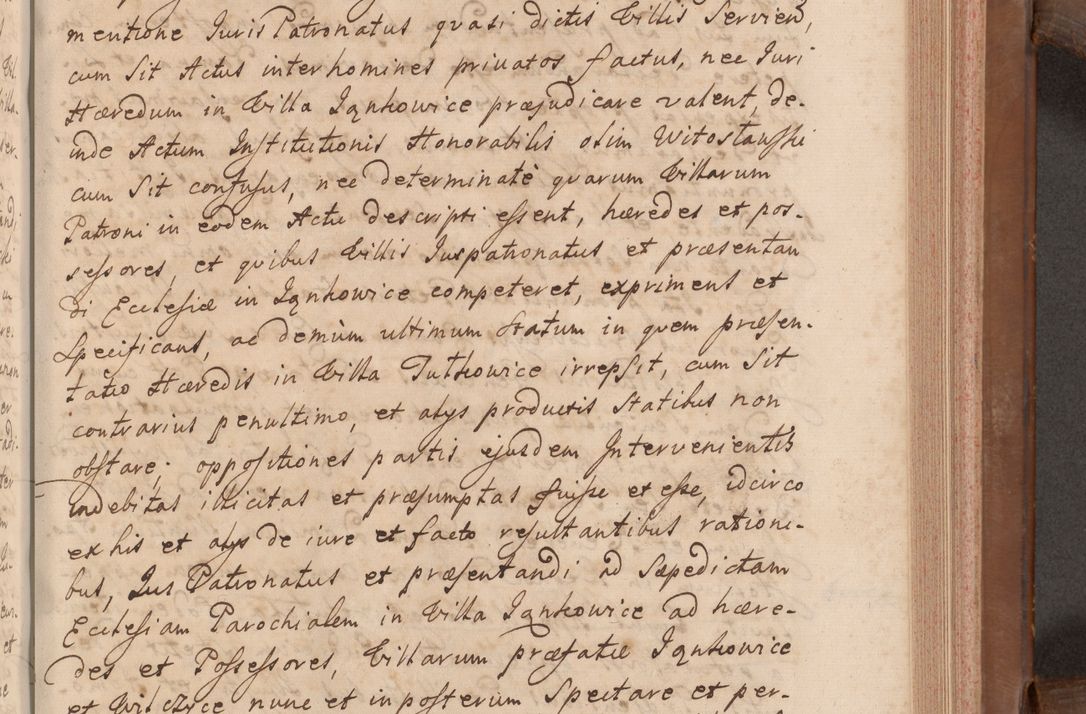 mentione Juris Patronatus quasi dictis Villis Servien,
cum Sit Actus inter homines privatos factus, nec Juri
Hæredum in Villa Jankowice præjudicare valent, de-
inde Actum Institutionis Honorabilis olim Witosławski
cum Sit confusus, nec determinatè quarum Villarum
Patroni in eodem Actu descripti essent, hæredes et pos-
sessores, et quibus Villis Juspatronatus et præsentan
di Ecclesiæ in Jankowice competeret, exprimens et
Specificans, ac demùm ultimum Statum in quem præsen-
tatio Hæredis in Villa Tutkowice irrepsit, cum Sit
contrarius penultimo, et alys productis Statibus non
obstare; oppositiones partis ejusdem Intervenientis
indebitas illicitas et præsumptas fuisse et esse, idcirco
ex his et alys de iure et facto resultantibus rationi-
bus, Jus Patronatus et præsentandi ad Sæpedictam
Ecclesiam Parochialem in Villa Jankowice ad hære-
des et Possessores, Villarum præfatæ Jankowice
et Wilczyce nunc et in posterum Spectare et per-